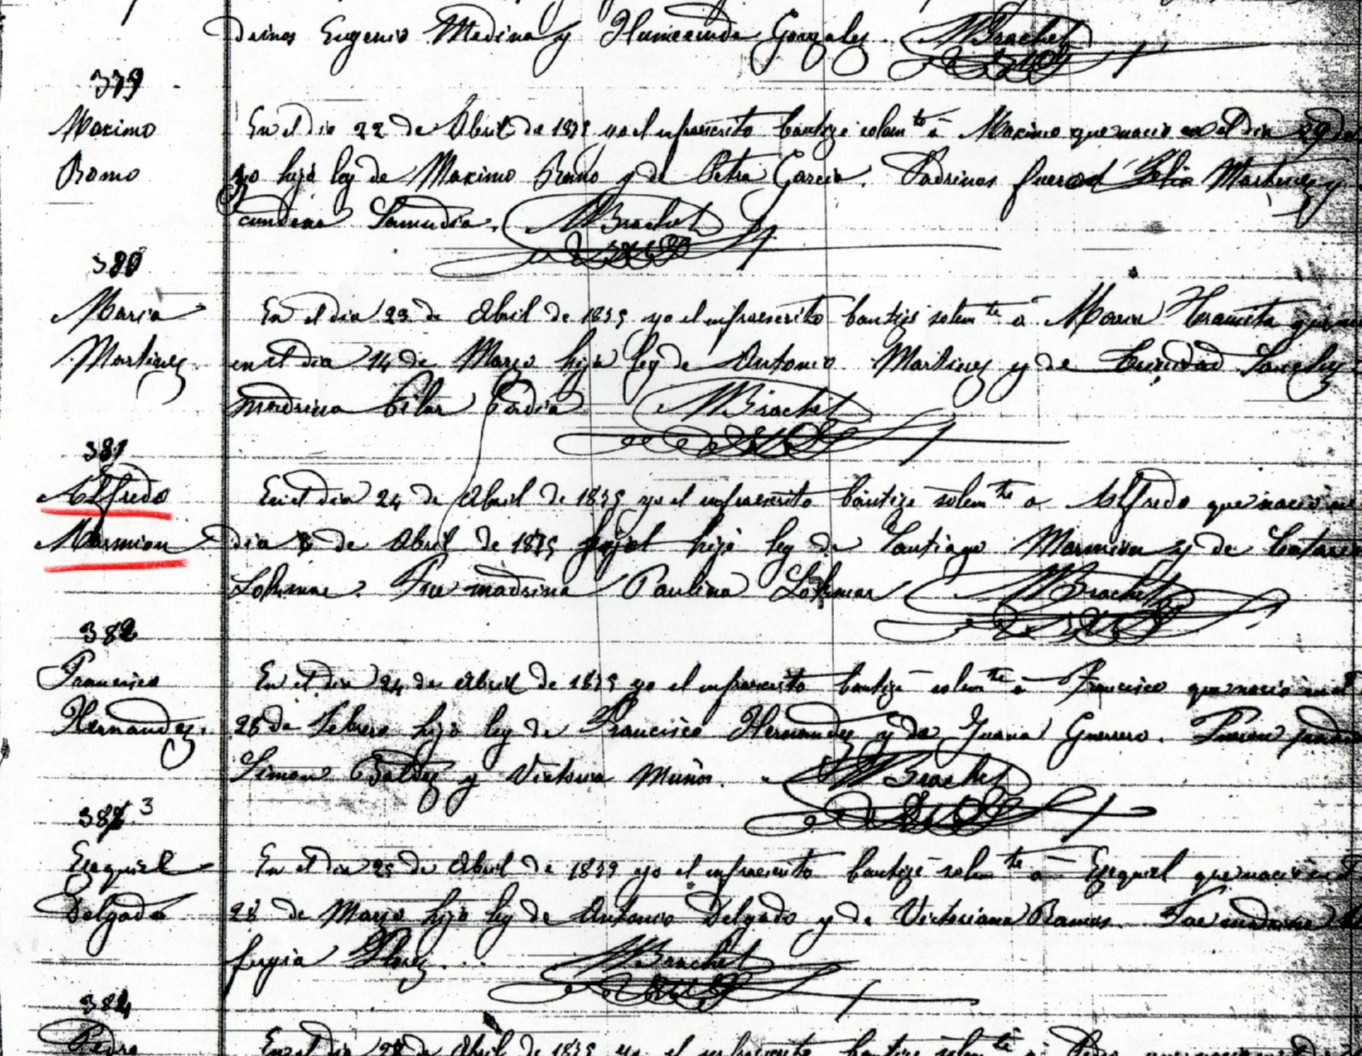 drinos Eugenio Medina y Gonzales. MBrachet
379
Maximo En el dia 22 de Abril de 1875 yo el infraescrito bautizé solemte á Maximo que nacio en el dia 29 de
Romo hijo leg de Maximo Romo y de Petra Garcia. Padrinos fueron Martinez y
Samudia. MBrachet
380
Maria En el dia 23 de Abril de 1875 yo el infraescrito bautizé solemte á Maria que
Martinez en el dia 14 de Marzo hija leg de Antonio Martinez y de Sanchez
madrina Pilar MBrachet
381
Alfredo En el dia 24 de Abril de 1875 yo el infraescrito bautize solemte a Alfredo que nacio
Marmion dia 3 de Abril de 1875 hijo leg de Santiago Marmion y de
Lohmar. Fue madrina Paulina Lohmar MBrachet
382
Francisco En el dia 24 de Abril de 1875 yo el infraescrito bautizé solemte á Francisco que nacio en el
Hernandez. 28 de Febrero hijo leg de Francisco Hernandez y de Juana Guerrero.
Simon Baldez y Victoria Muños. MBrachet
383
Ezequiel En el dia 25 de Abril de 1875 yo el infraescrito bautizé solemte á Ezequiel que nacio en el
Delgado 28 de Marzo hijo leg de Antonio Delgado y de Victoriana Ramos. Fue madrina
fugia MBrachet
384
Pedro En el dia de Abril de 1875 yo el infraescrito bautizé solemte á Pedro